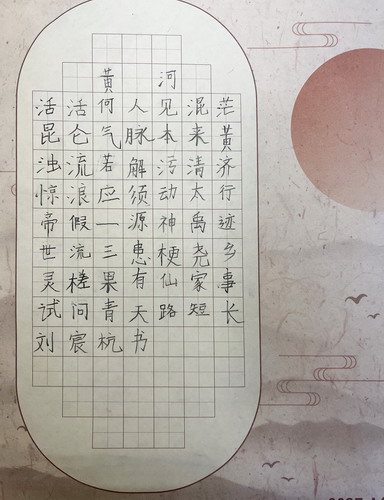 黄河
活活何人见混茫
昆仑气脉本来黄
浊流若解污清济
惊浪应须动太行
帝假一源神禹迹
世流三患梗尧乡
灵槎果有仙家事
试问青天路短长
刘宸杭书